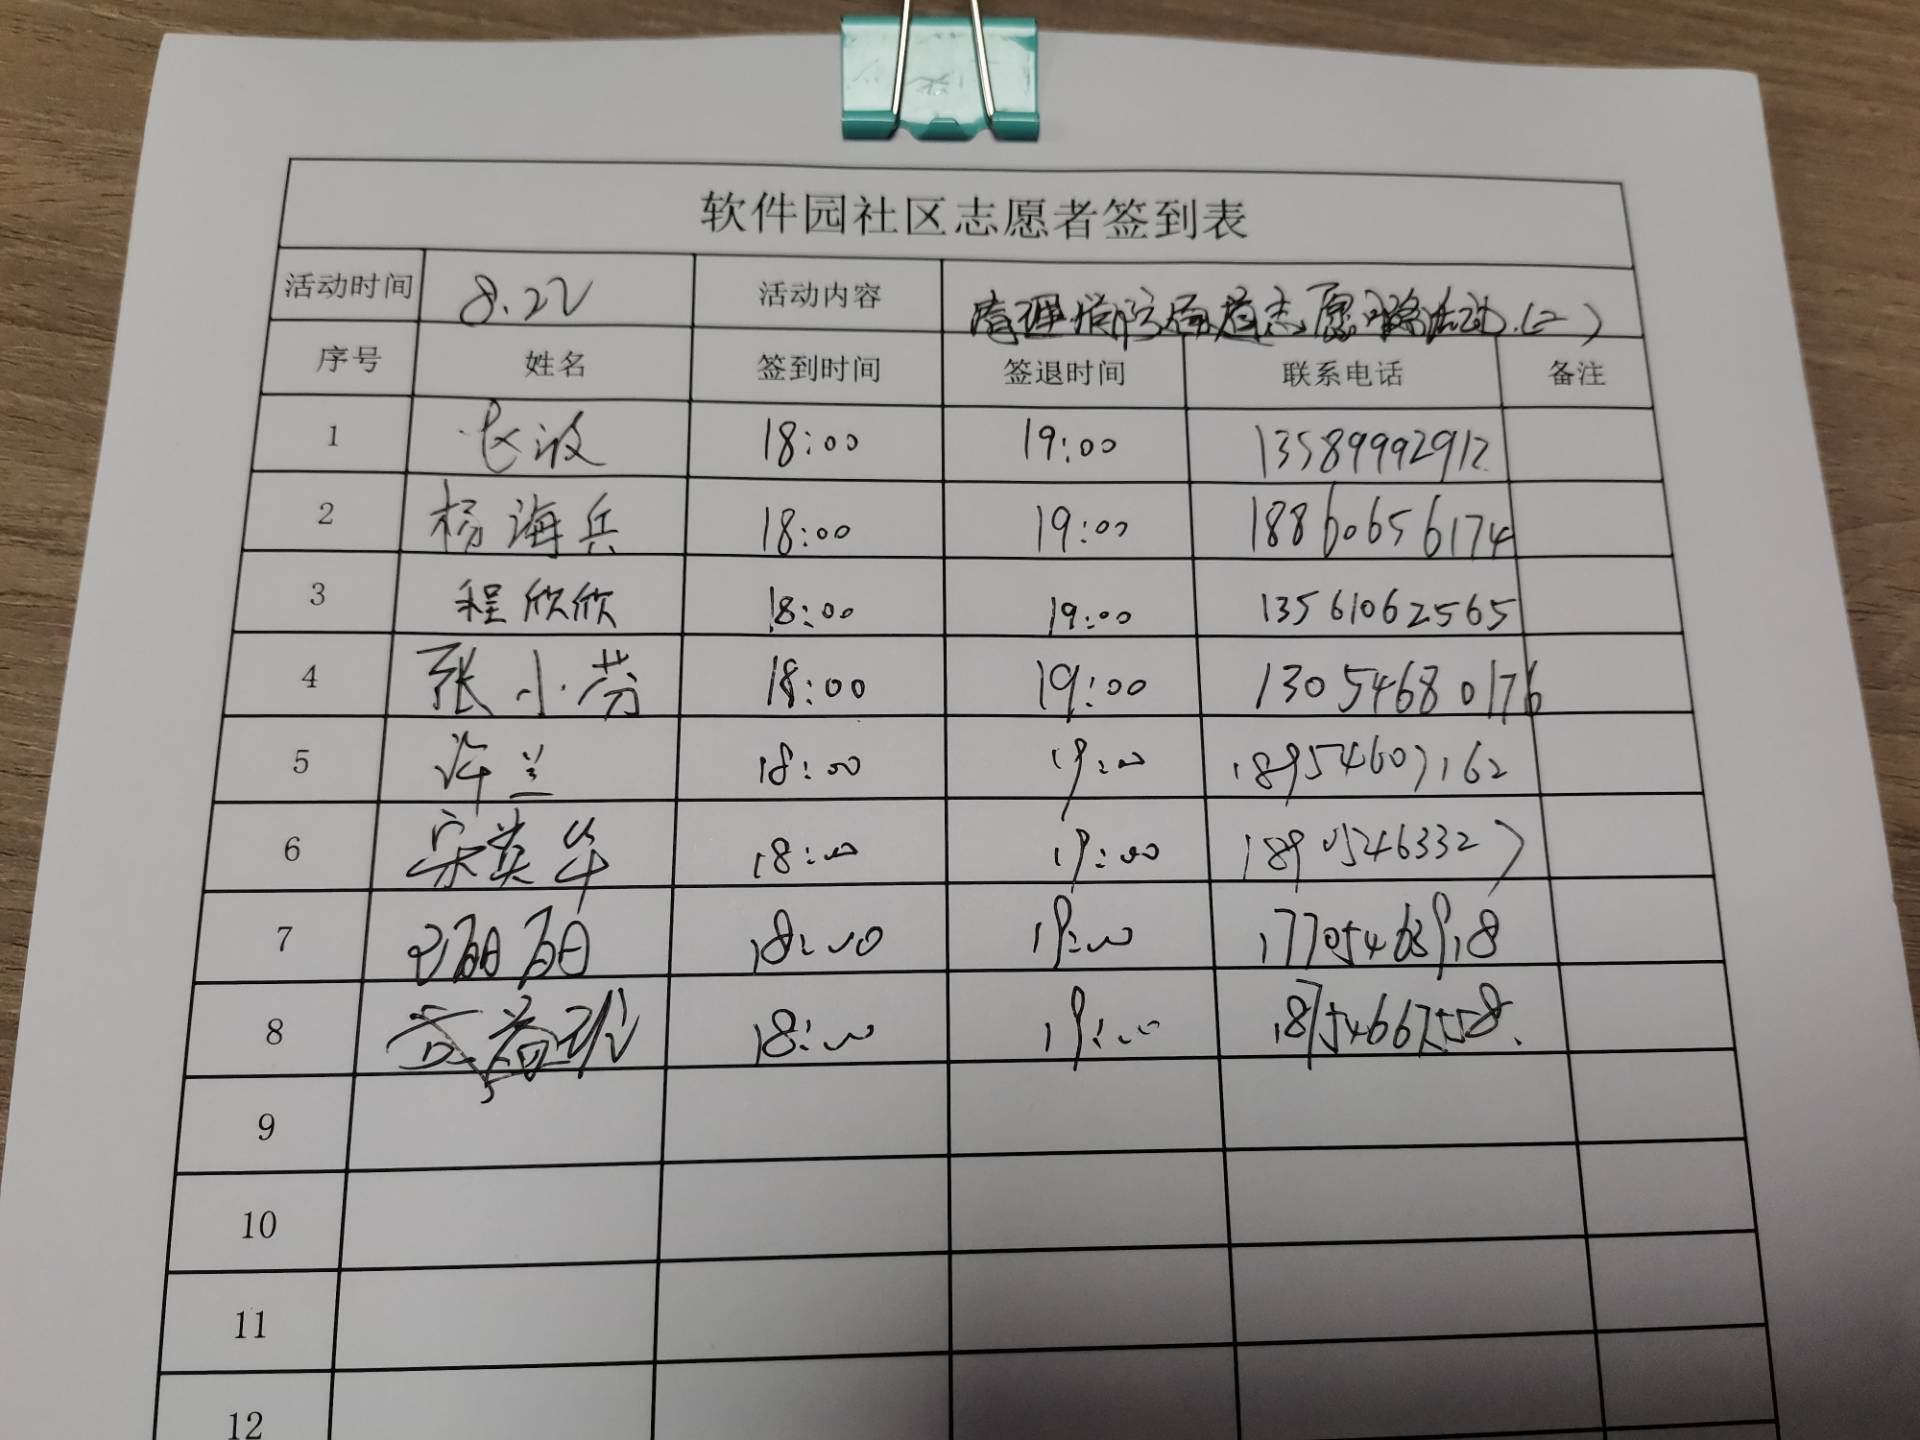 软件园社区志愿者签到表
活动时间 8.22 活动内容 志愿 活动(二)
序号 姓名 签到时间 签退时间 联系电话 备注
1 波 18:00 19:00 13589992912
2 杨海兵 18:00 19:00 18860656174
3 程欣欣 18:00 19:00 13561062565
4 张小芬 18:00 19:00 13054680176
5 许兰 18:00 19:00 18954607162
6 宋英华 18:00 19:00 18905463327
7 18:00 19:00
8 18:00 19:00
9
10
11
12